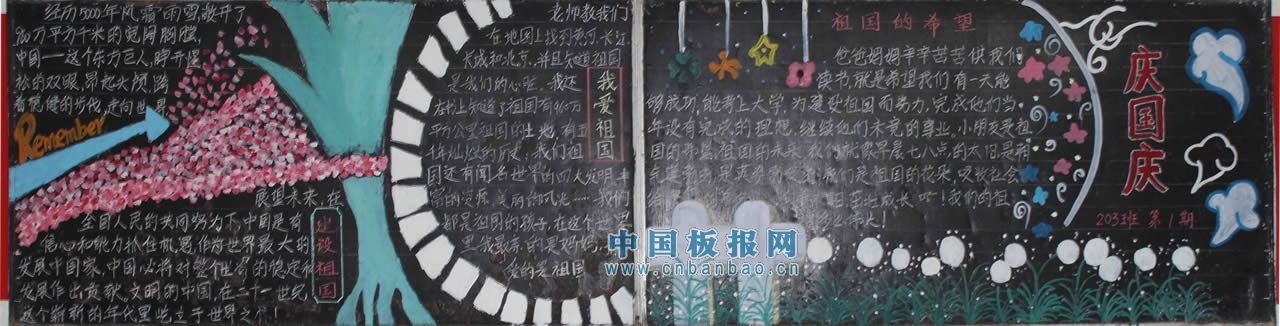 经历5000年风霜雨雪,敞开了
960万平方千米的宽阔胸膛,
中国一这个东方巨人,睁开惺
松的双眼,昂起头颅,踏
着稳健的步伐,走向世界
Remember
展望未来,在
全国人民的共同努力下,中国是有
信心和能力抓住机遇,作为世界最大的
发展中国家,中国必将对整个世界的稳定和
发展作出贡献。文明的中国,在二十一世纪
这个崭新的年代里屹立于世界之林!
建设祖国
老师教我们
在地图上找到黄河、长江、
长城和北京,并且知道祖国
是我们的心脏。我还
在书上知道了祖国有960万
平方公里祖国的土地,有五
千年灿烂的历史,我们祖
国还有闻名世界的四大发明,丰
富的资源,美丽的风光……我们
都是祖国的孩子,在这个世界
里,我最亲的是妈妈,
爱的是祖国
我爱祖国
祖国的希望
爸爸妈妈辛辛苦苦供我们
读书,就是希望我们有一天能
够成功,能考上大学,为建设祖国而努力,完成他们当
年没有完成的理想,继续他们未竟的事业,小朋友是祖
国的希望,祖国的未来,我们就像早晨七八点的太阳是
我们是祖国的花朵,吸收
茁壮成长吧!我们的祖
伟大!
庆国庆
203班 第1期
中国板报网
www.cnbanbao.cn